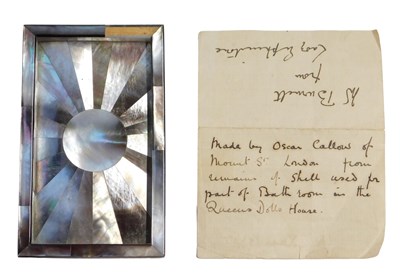 Mrs Burnett
from
Lady Elphinstone
Made by Oscar Callow of
Mount St London from
remains of Shell used for
part of Bath room in the
Queens Dolls House.